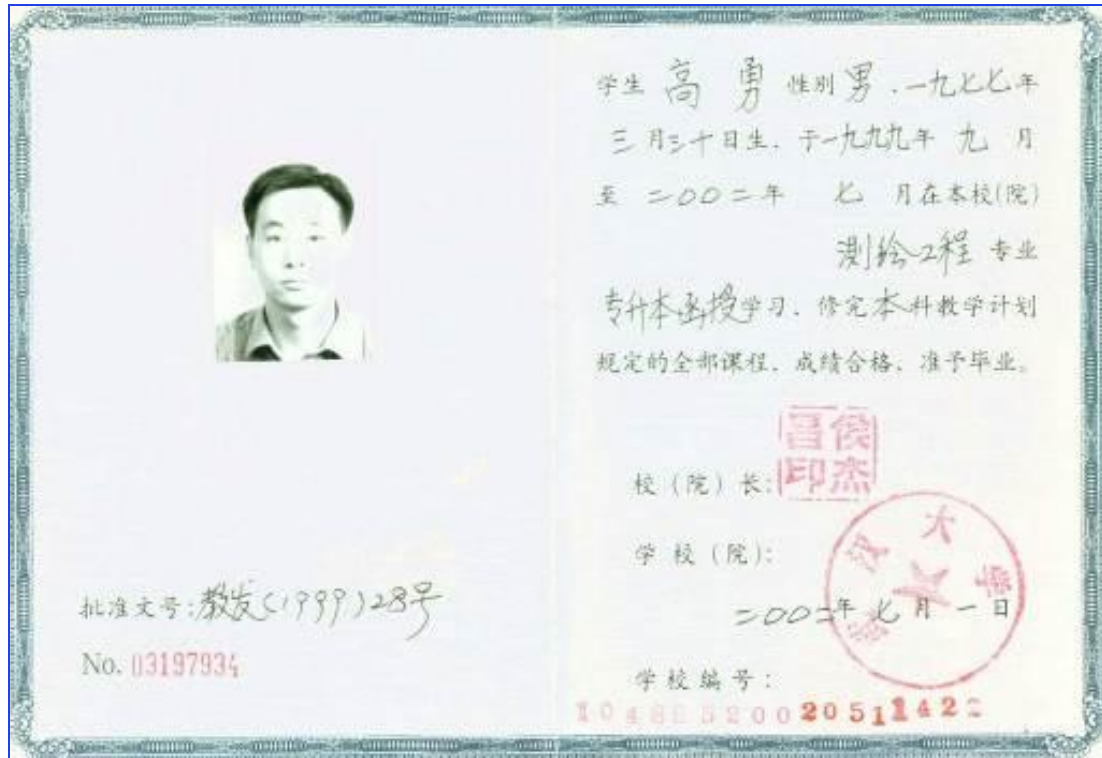 批准文号:教发(1999)28号
No. 03197934
学生 高勇 性别 男.一九七七年
三月三十日生.于一九九九年 九 月
至 二〇〇二年 七 月在本校(院)
测绘工程 专业
专升本函授学习.修完本科教学计划
规定的全部课程.成绩合格.准予毕业。
校(院)长:
侯杰昌印
学校(院):
武汉大学
二〇〇二年 七 月 一 日
学校编号: